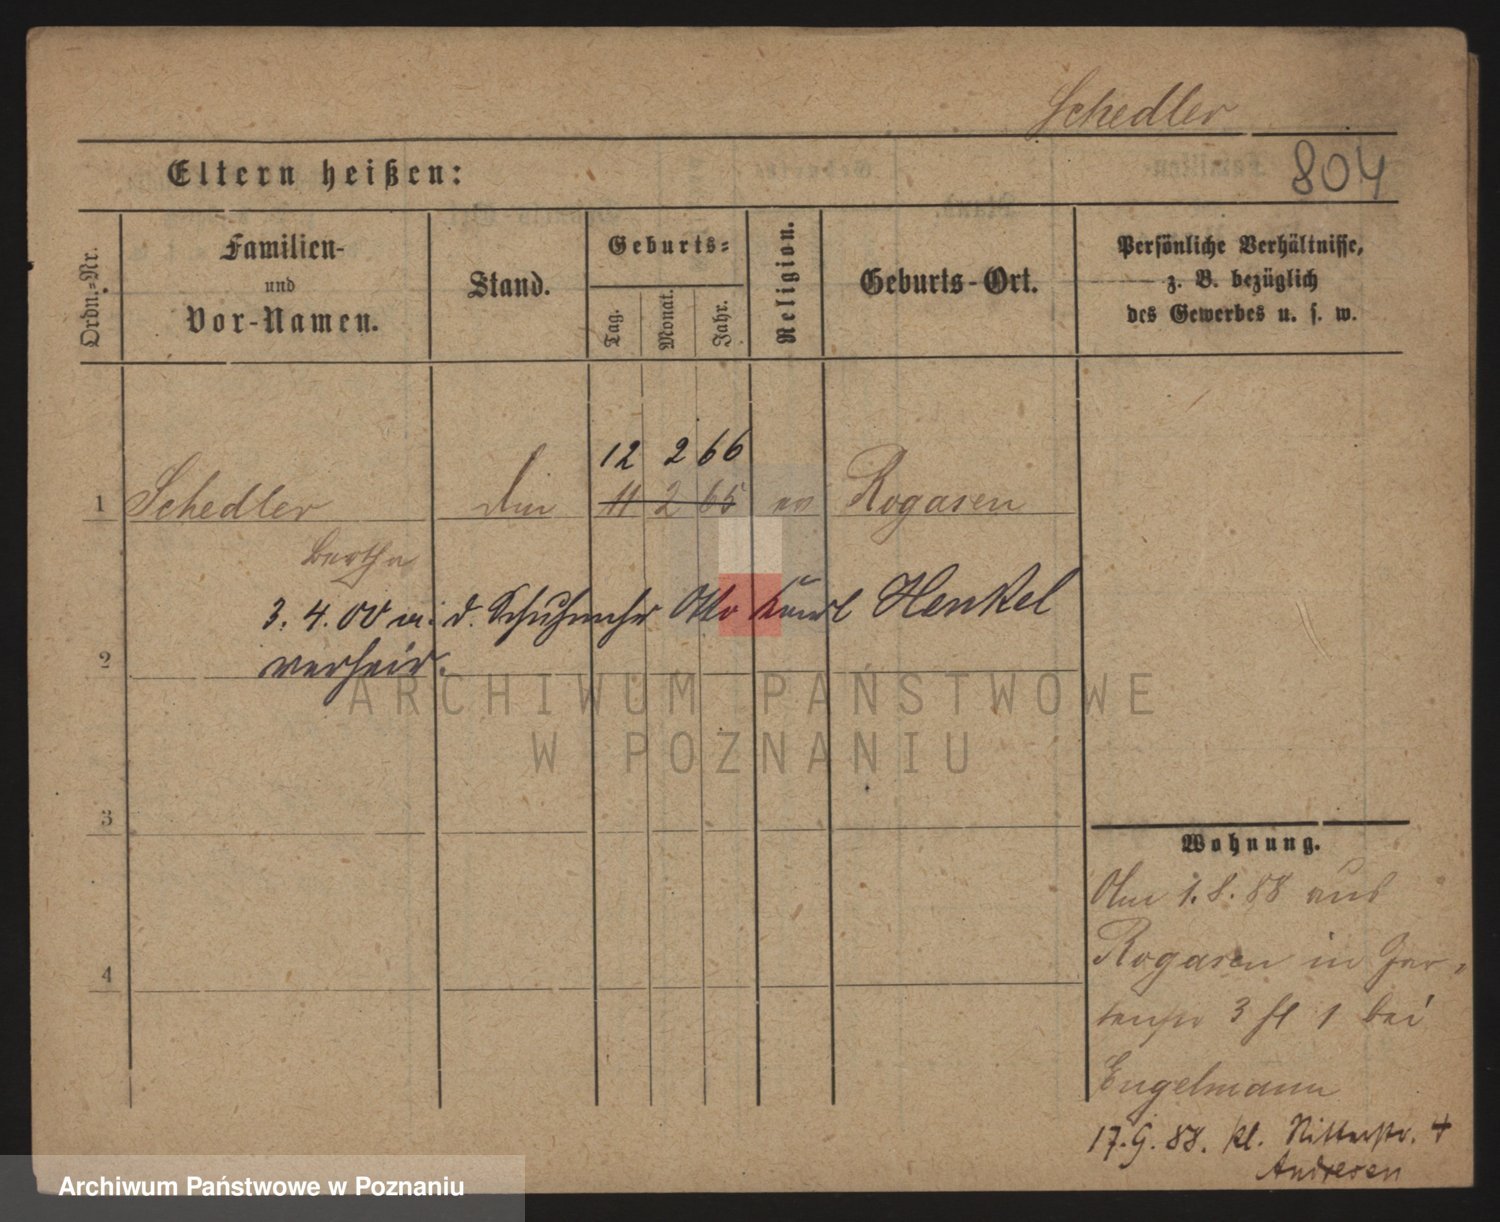 Schedler
Eltern heißen:
804
Ordn.-Nr.
Familien-
und
Vor-Namen.
Stand.
Geburts-
Tag.
Monat.
Jahr.
Religion.
Geburts-Ort.
Persönliche Verhältnisse,
z. B. bezüglich
des Gewerbes u. s. w.
12 2 66
1 Schedler 11 2 65 ev Rogasen
Bertha
3. 4. 00 m. d. Schuhmchr Otto Henkel
verheir.
2
ARCHIWUM PAŃSTWOWE
W POZNANIU
3
4
Wohnung.
1. 8. 88 aus
Rogasen in Gar-
tenstr 3 1 bei
Engelmann
17. 9. 88. kl. Ritterstr. 4
Andresen
Archiwum Państwowe w Poznaniu